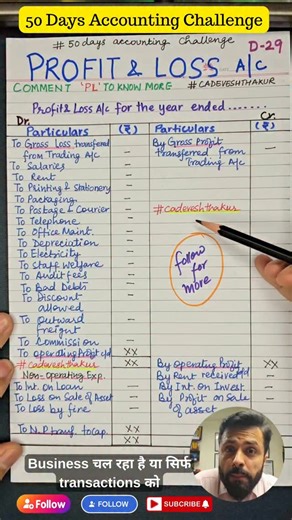 50 Days Accounting Challenge
# 50days accounting challenge
D-29
PROFIT & LOSS A/C
COMMENT 'PL' TO KNOW MORE #CADEVESHTHAKUR
Profit & Loss A/c for the year ended.......
Dr. Cr.
Particulars (₹) Particulars (₹)
To Gross Loss transferred from Trading A/c –
To Salaries –
To Rent –
To Printing & Stationery –
To Packaging –
To Postage & Courier –
To Telephone –
To Office Maint. –
To Depreciation –
To Electricity –
To Staff Welfare –
To Audit fees –
To Bad Debts –
To Discount allowed –
To Outward freight –
To Commission –
To Operating Profit c/d XX
#cadeveshthakur XX
Non-Operating Exp.
To Int. on Loan –
To Loss on Sale of Asset –
To Loss by fire –
To N.P transf. to cap. XX
XX
By Gross Profit transferred from Trading A/c –
#cadeveshthakur
follow
for
more
By Operating Profit XX
By Rent received –
By Int. on Invest. –
By Profit on Sale of asset –
Business चल रहा है या सिर्फ
transactions को
Follow
FOLLOW
SUBSCRIBE